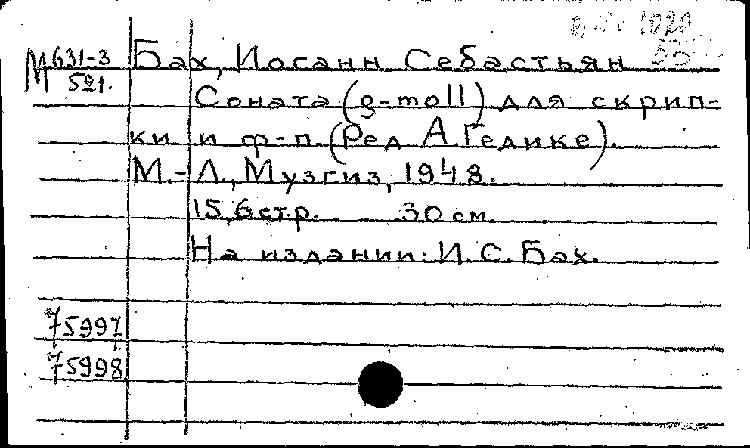 М 631-3 Бах, Иосанн Себастьян
521. Соната (g-moll) для скрип-
ки и ф-п. (Ред А. Гедике).
М.-Л., Музгиз, 1948.
15,6 стр. 30 см.
На издании: И. С. Бах.
75997
75998